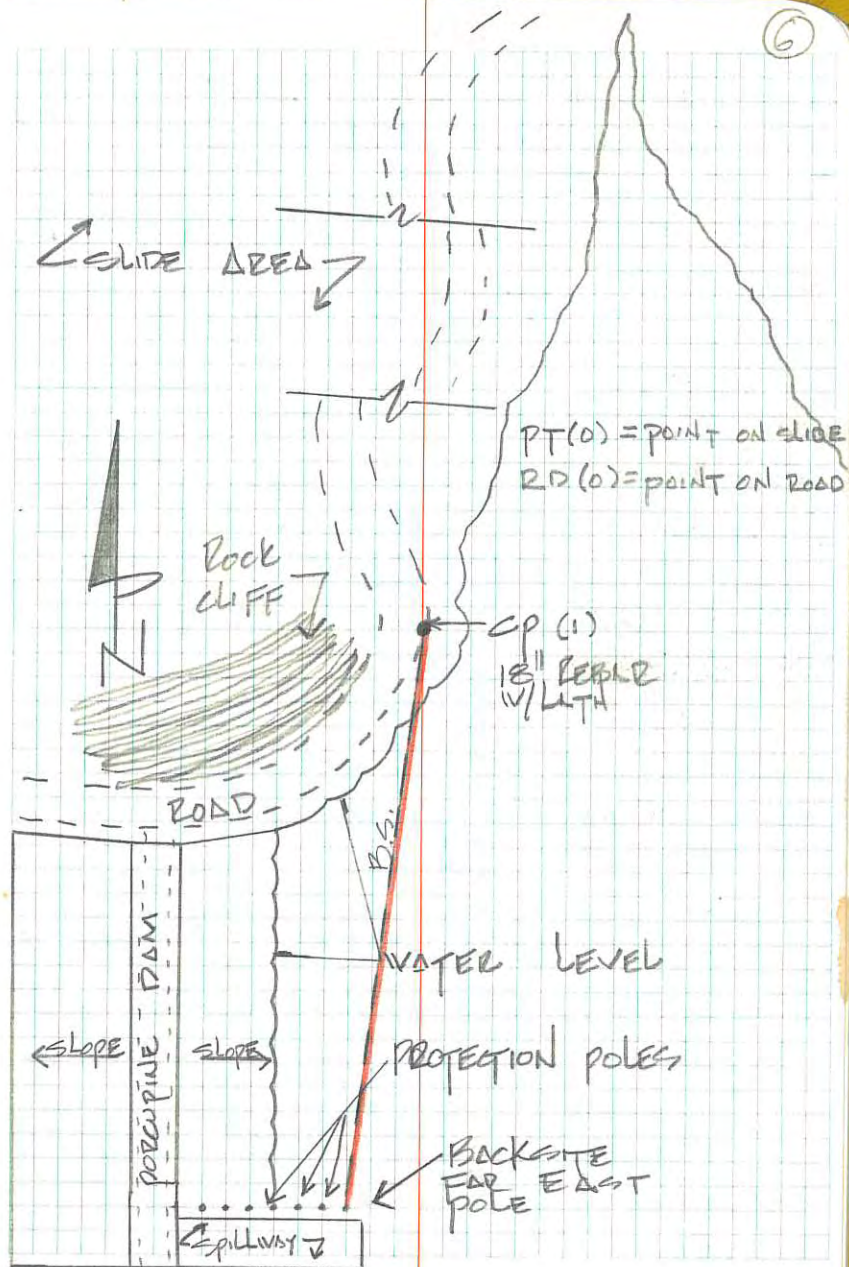 6
SLIDE AREA
PT(0) = POINT ON SLIDE
RD(0) = POINT ON ROAD
Rock
CLIFF
N
CP (1)
18" REBAR
W/ LATH
ROAD
B.S.
WATER LEVEL
PORCUPINE DAM
SLOPE
SLOPE
PROTECTION POLES
BACKSITE
FAR EAST
POLE
Spillway